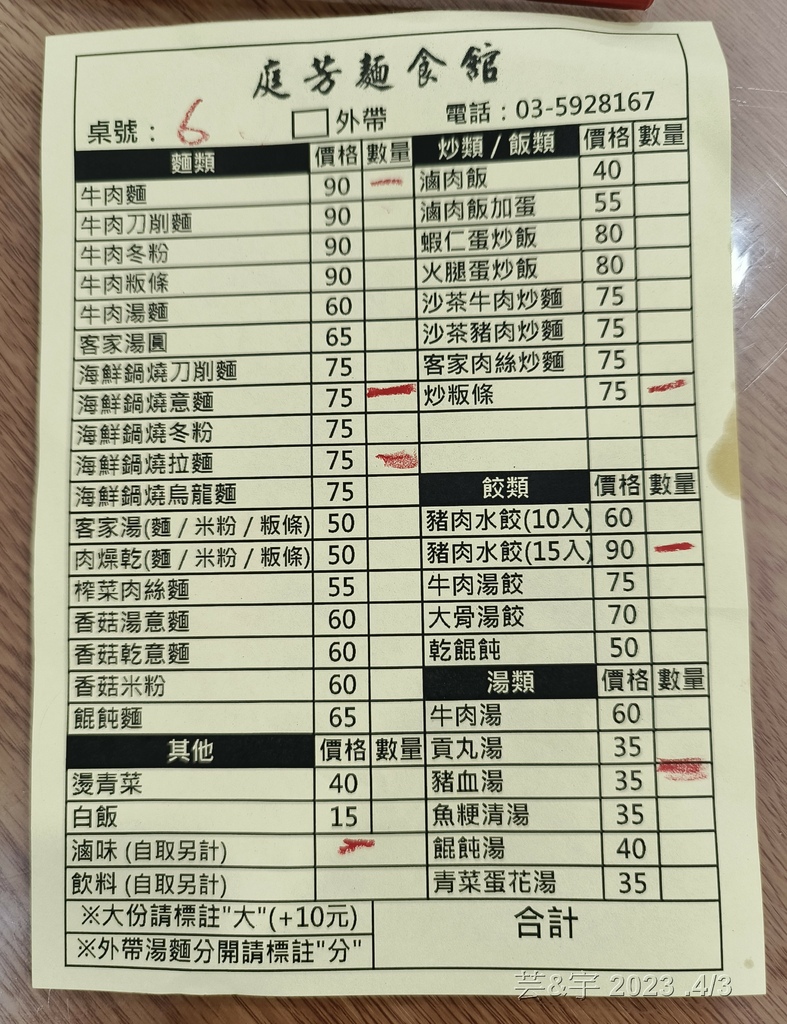 庭芳麵食館
桌號： 6 外帶 電話：03-5928167
麵類 價格 數量
牛肉麵 90
牛肉刀削麵 90
牛肉冬粉 90
牛肉粄條 90
牛肉湯麵 60
客家湯圓 65
海鮮鍋燒刀削麵 75
海鮮鍋燒意麵 75
海鮮鍋燒冬粉 75
海鮮鍋燒拉麵 75
海鮮鍋燒烏龍麵 75
客家湯(麵 / 米粉 / 粄條) 50
肉燥乾(麵 / 米粉 / 粄條) 50
榨菜肉絲麵 55
香菇湯意麵 60
香菇乾意麵 60
香菇米粉 60
餛飩麵 65
其他 價格 數量
燙青菜 40
白飯 15
滷味 (自取另計)
飲料 (自取另計)
※大份請標註"大"(+10元)
※外帶湯麵分開請標註"分"
炒類 / 飯類 價格 數量
滷肉飯 40
滷肉飯加蛋 55
蝦仁蛋炒飯 80
火腿蛋炒飯 80
沙茶牛肉炒麵 75
沙茶豬肉炒麵 75
客家肉絲炒麵 75
炒粄條 75
餃類 價格 數量
豬肉水餃(10入) 60
豬肉水餃(15入) 90
牛肉湯餃 75
大骨湯餃 70
乾餛飩 50
湯類 價格 數量
牛肉湯 60
貢丸湯 35
豬血湯 35
魚粳清湯 35
餛飩湯 40
青菜蛋花湯 35
合計
芸&宇 2023 .4/3